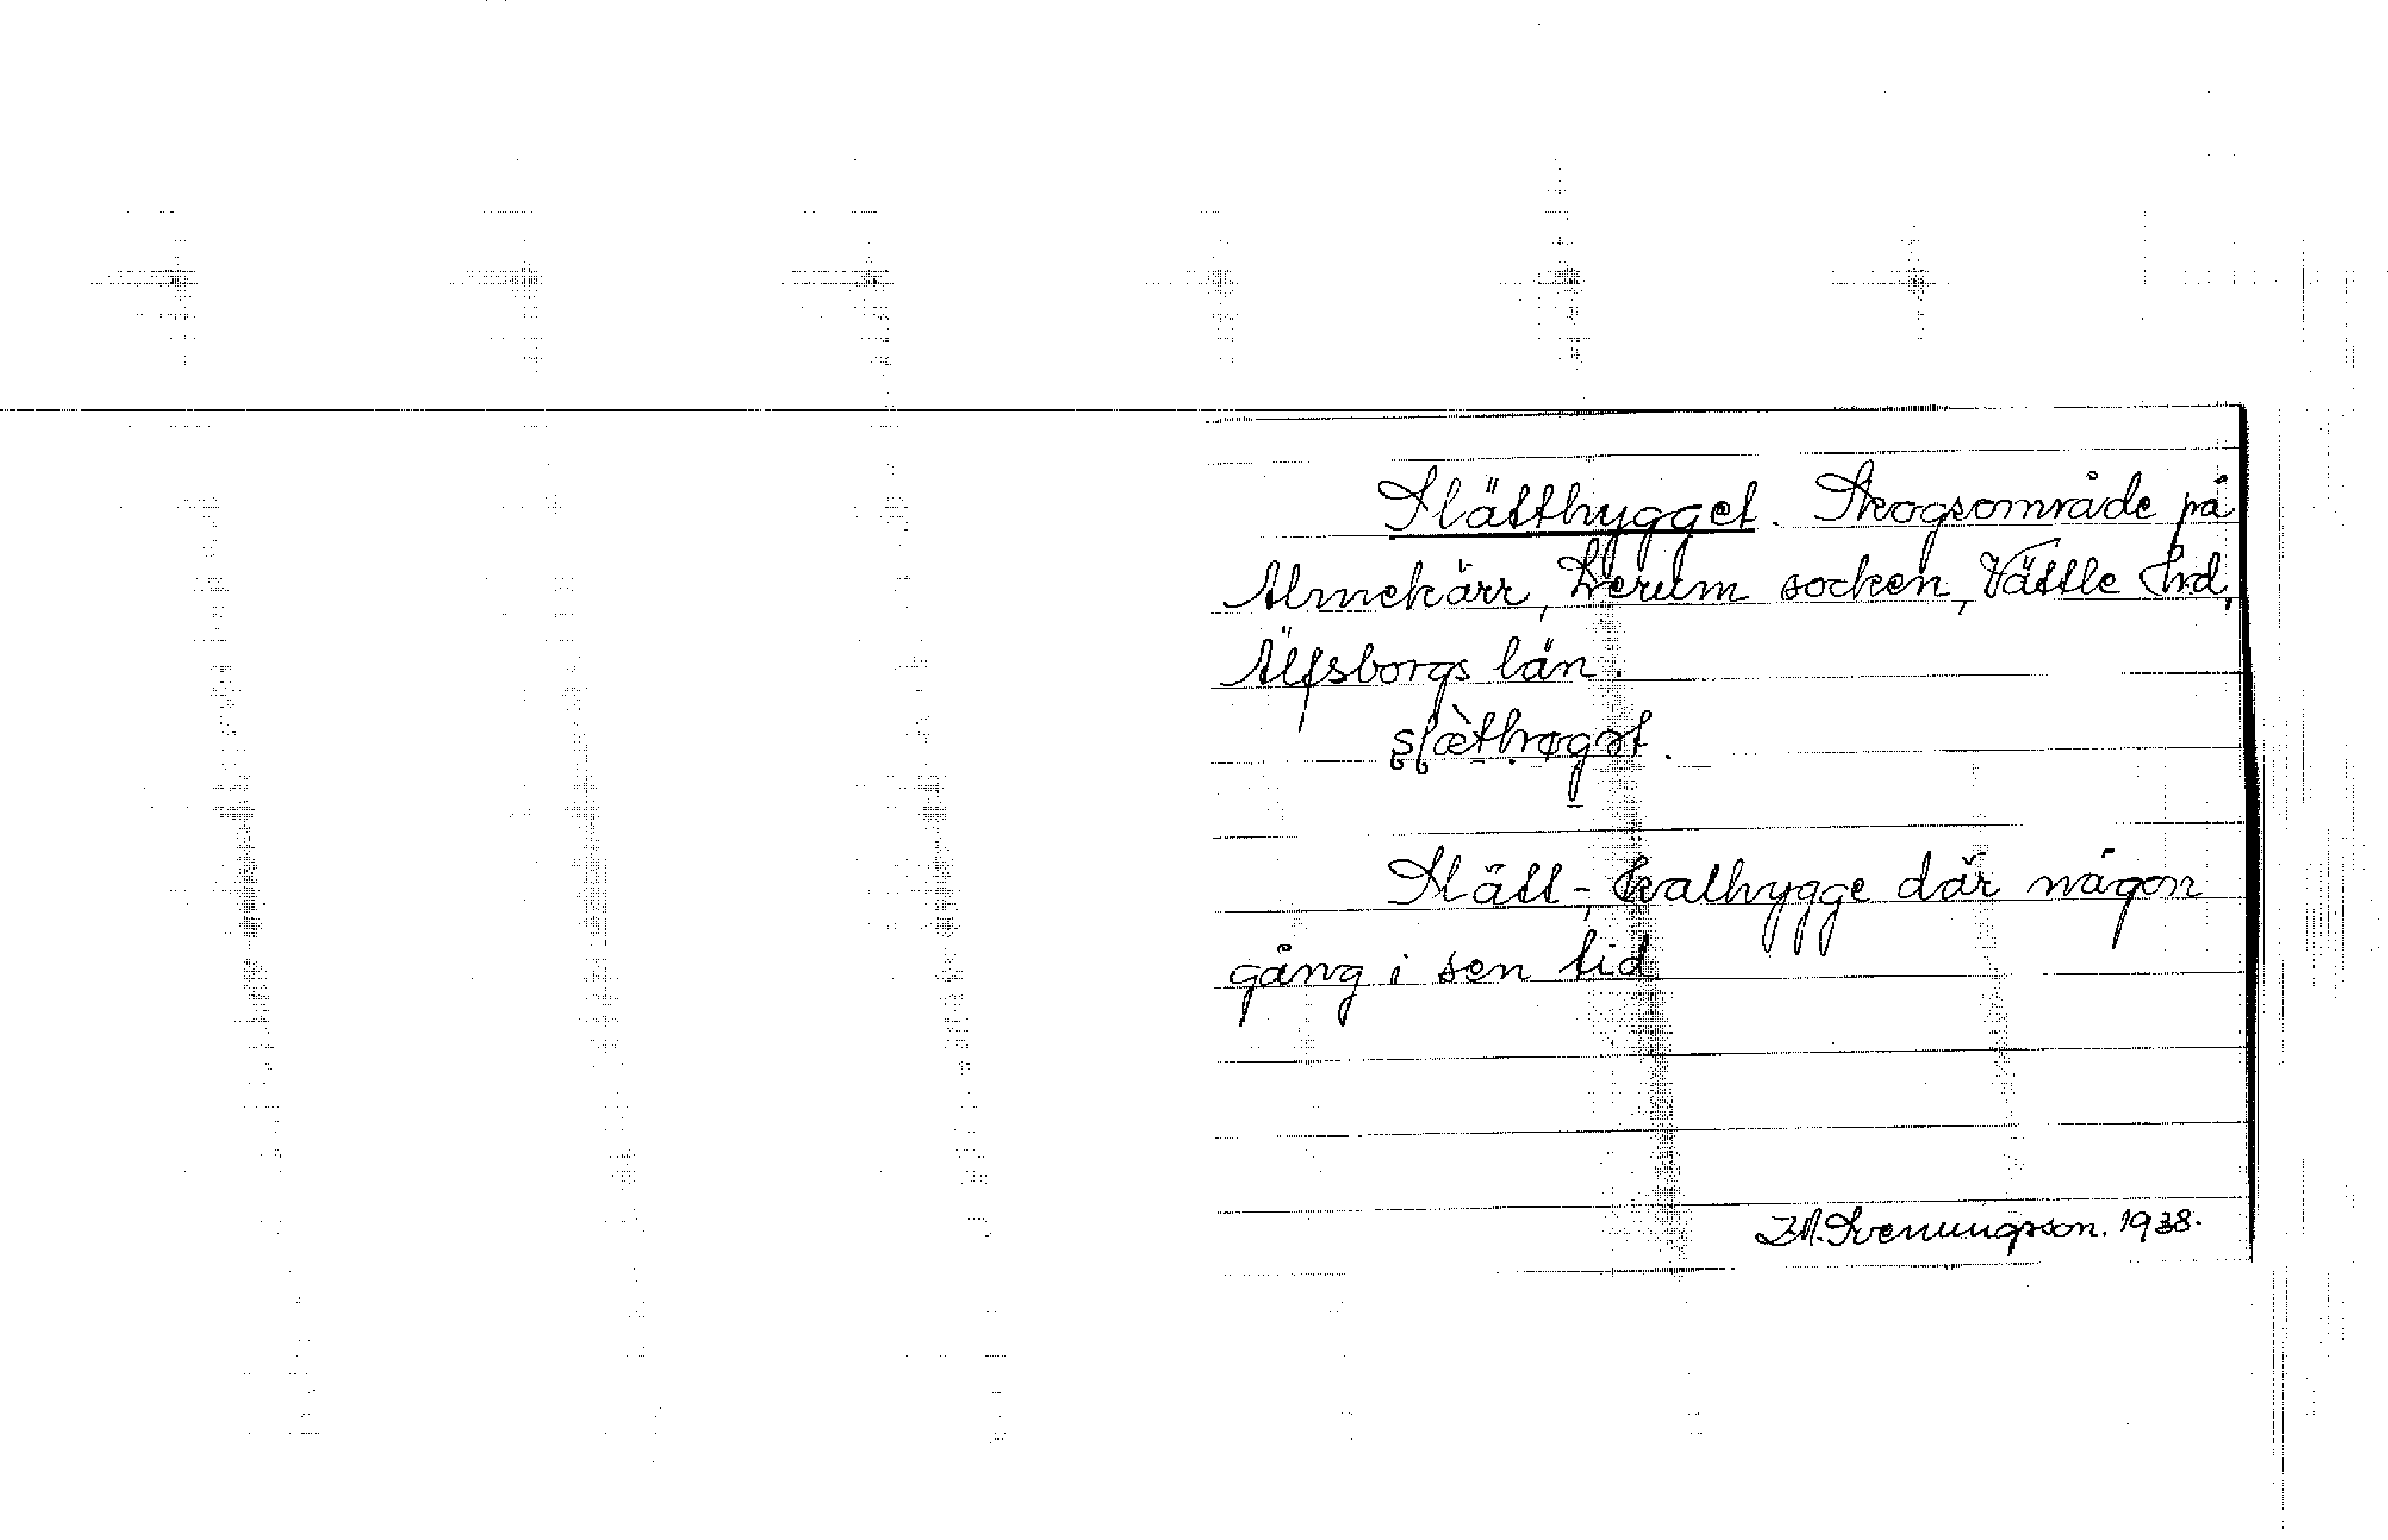 Slätthygget. Skogsområde på
Almekärr, Lerum socken, Vättle hrd,
Älfsborgs län.
slæ̀thøgət.
Slätt-, kalhygge där någon
gång i sen tid
I.M. Svenungsson. 1938.